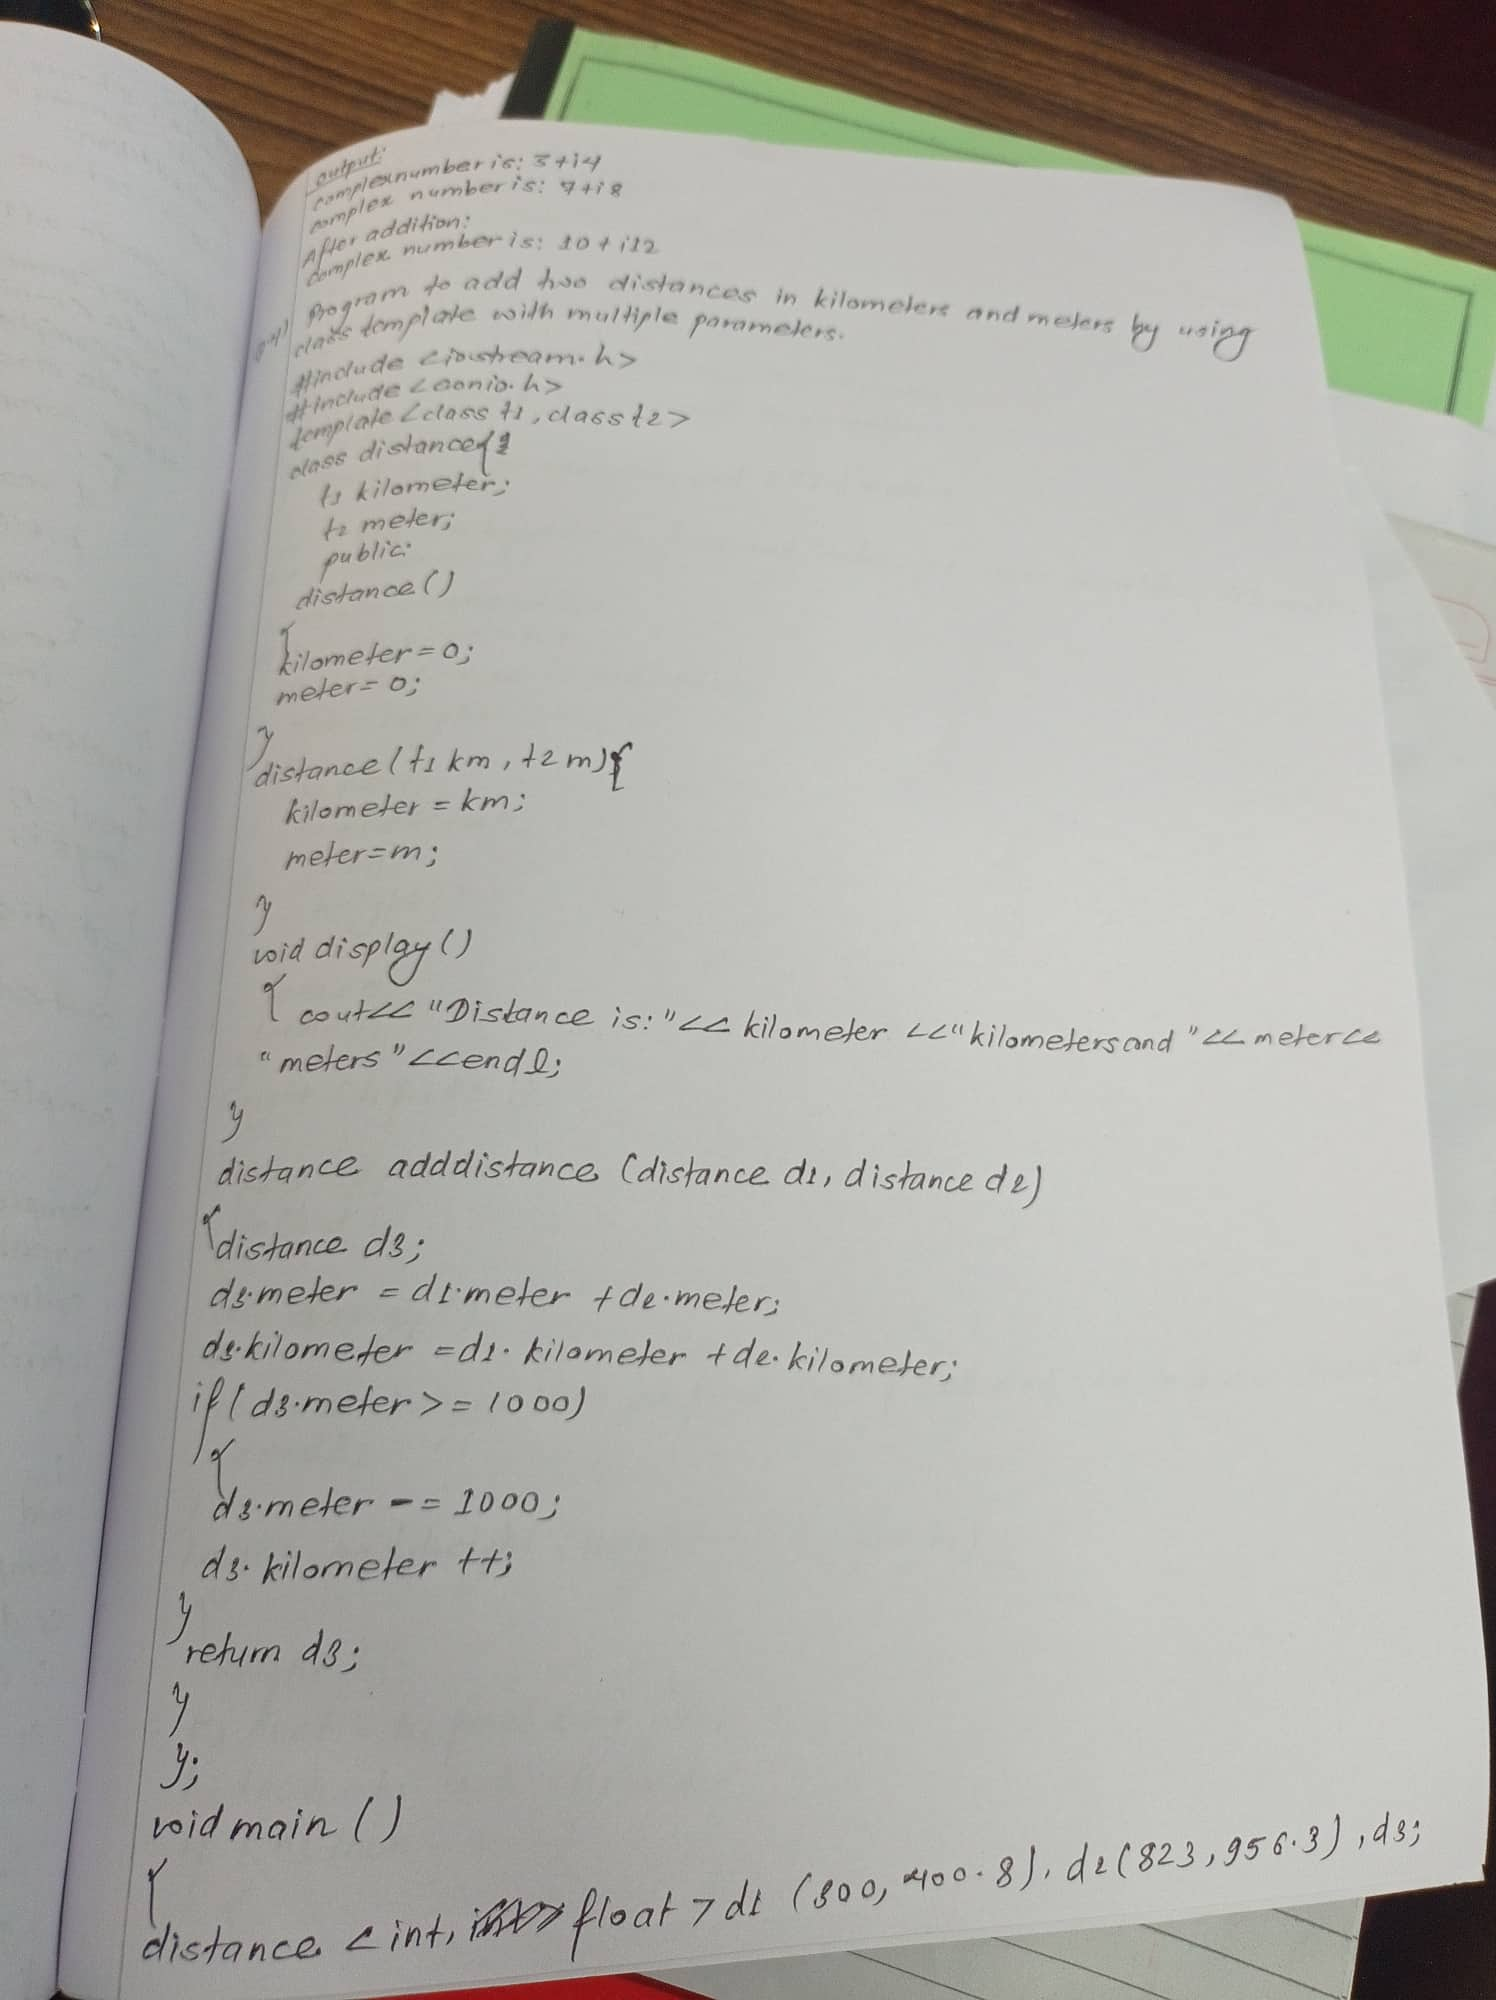 output:
complexnumber is: 3+i4
complex number is: 7+i8
After addition:
complex number is: 10+i12
Program to add two distances in kilometers and meters by using
class template with multiple parameters.
#include <iostream.h>
#include <conio.h>
template <class t1, class t2>
class distance{
t1 kilometer;
t2 meter;
public:
distance()
{
kilometer=0;
meter=0;
}
distance(t1 km, t2 m){
kilometer = km;
meter=m;
}
void display()
{ cout<< "Distance is:"<< kilometer <<"kilometersand "<< meter<<
"meters"<<endl;
}
distance adddistance (distance d1, distance d2)
{
distance d3;
d3.meter = d1.meter +d2.meter;
d3.kilometer =d1. kilometer +d2. kilometer;
if(d3.meter>=1000)
{
d3.meter -= 1000;
d3. kilometer ++;
}
return d3;
}
};
void main()
{
distance <int, float> d1 (800, 400.8), d2(823,956.3),d3;